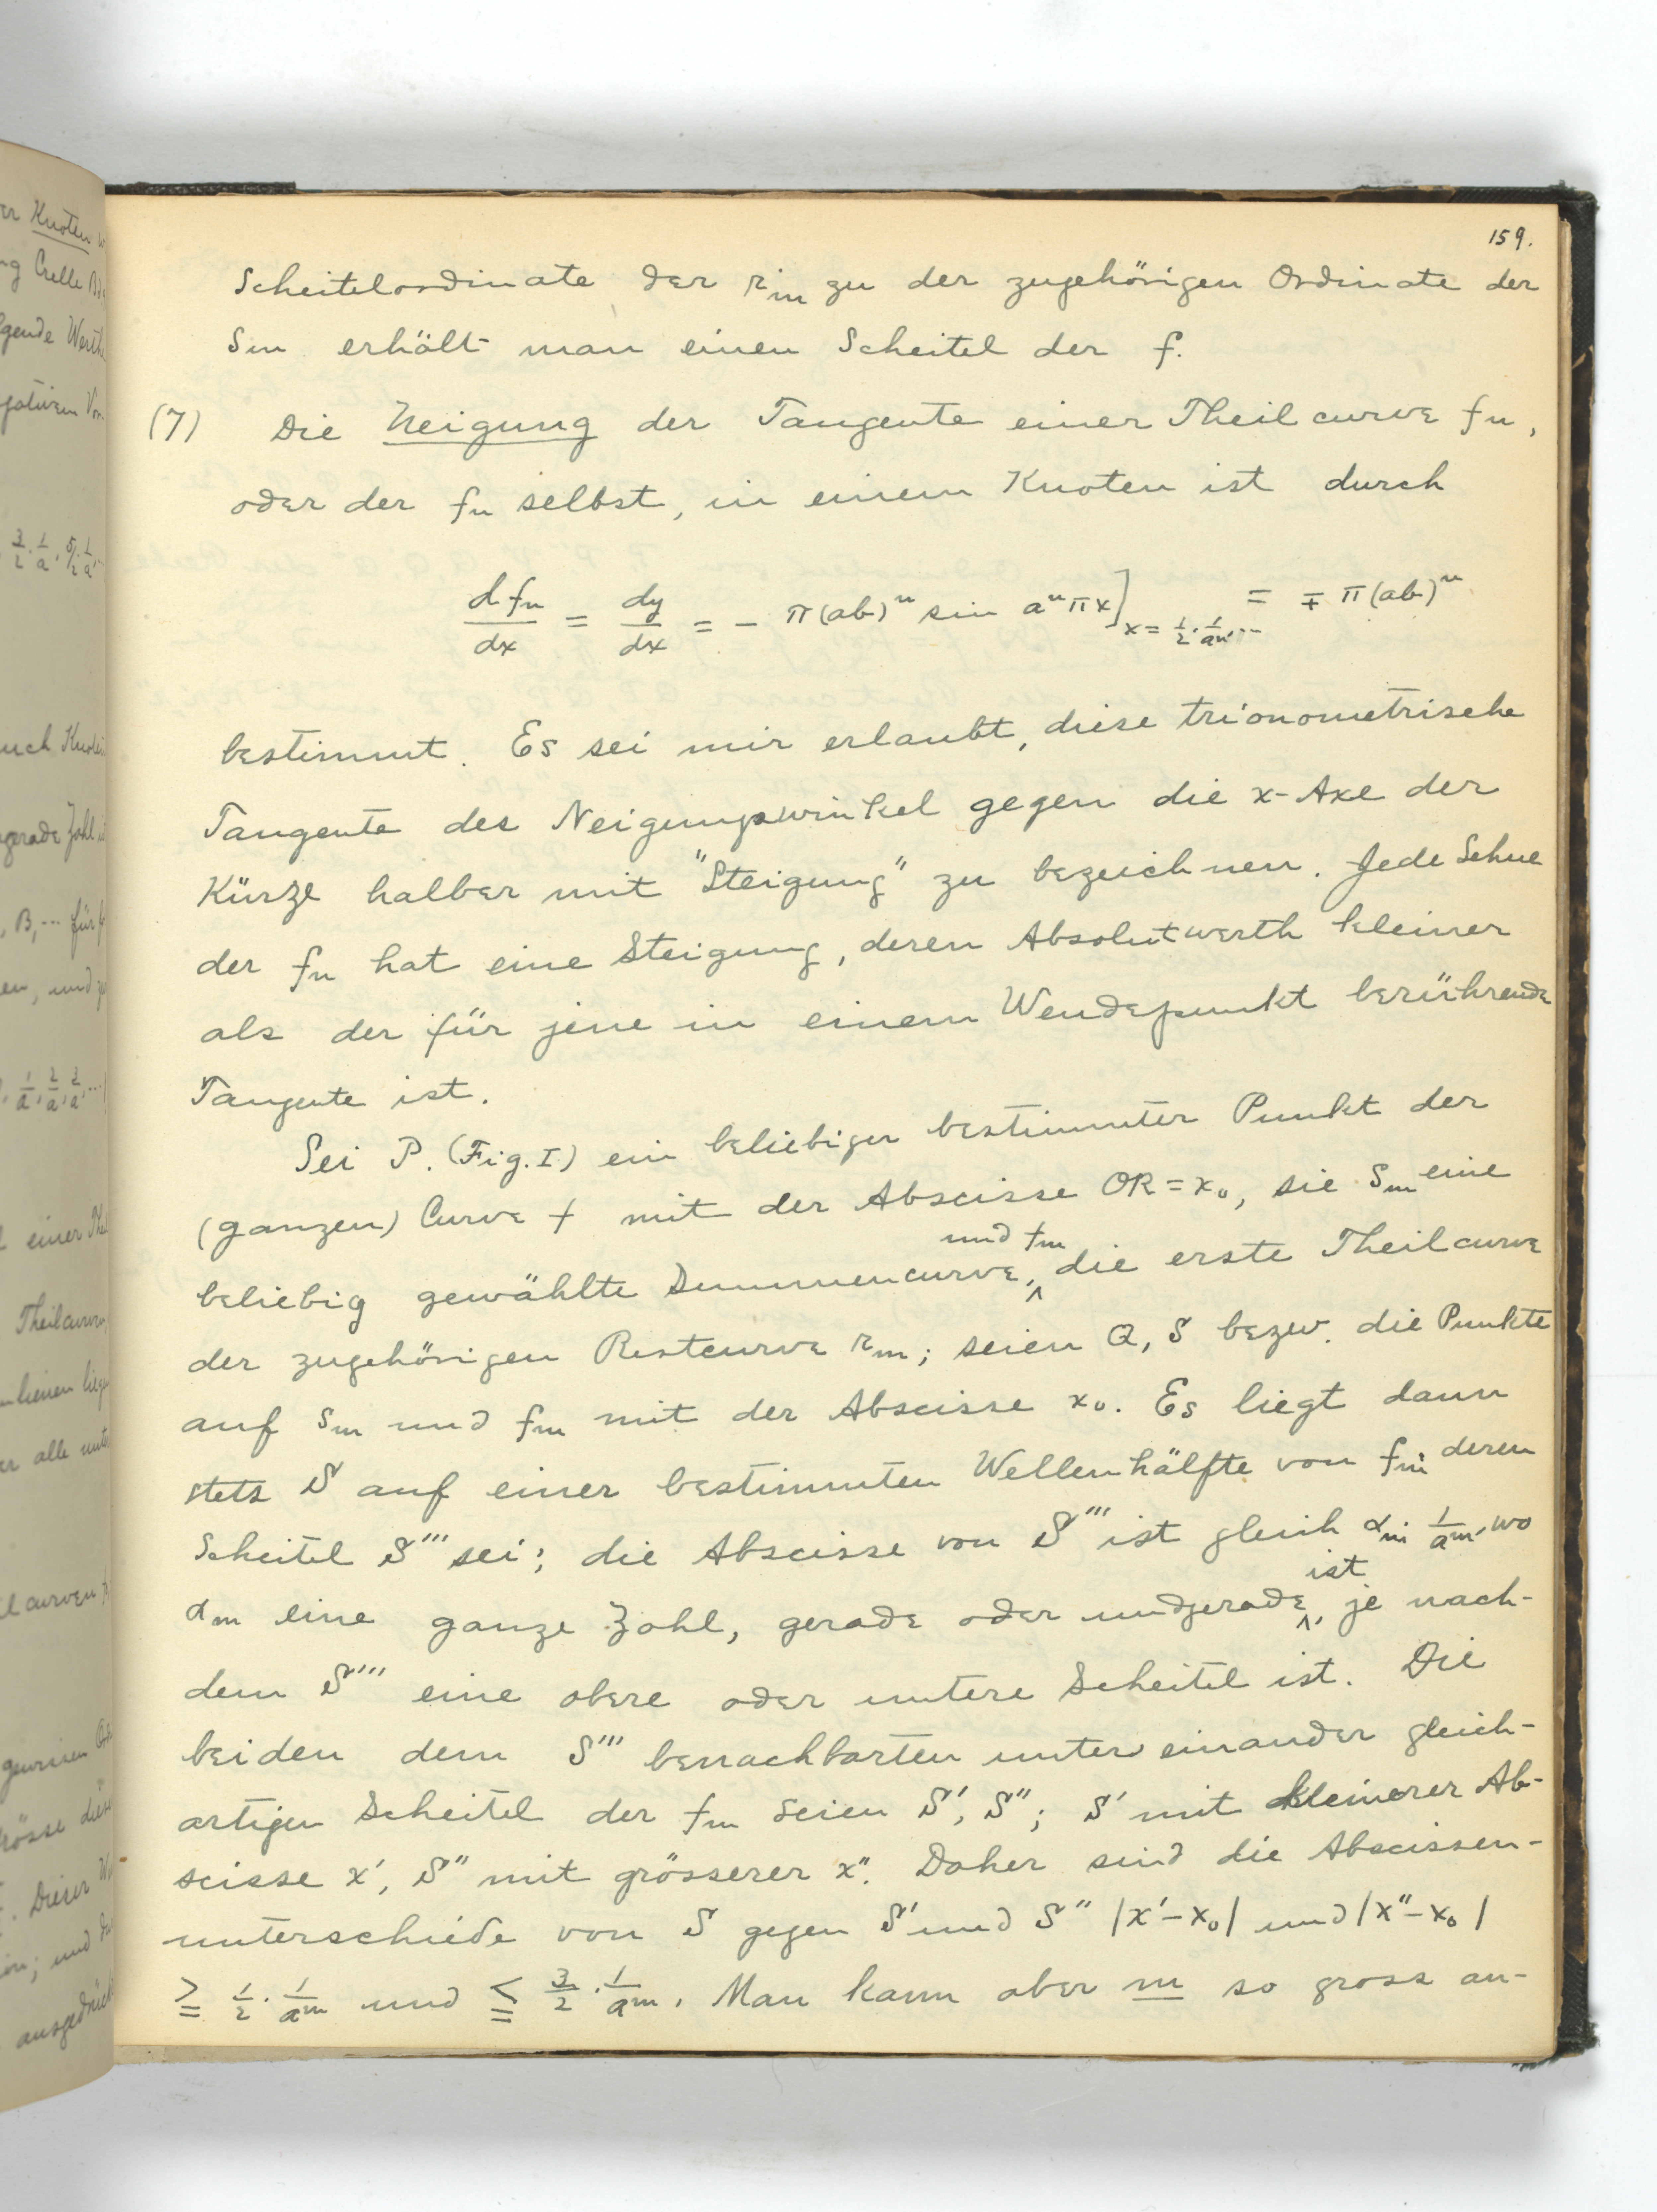 159.
Scheitelordinate der r_m zu der zugehörigen Ordinate der
s_m erhält man einen Scheitel der f.
(7) Die Neigung der Tangente einer Theilcurve f_n,
oder der f_n selbst, in einem Knoten ist durch
df_n/dx = dy/dx = - π(ab)^n sin a^n πx]_{x = 1/2 · 1/a^n, ...} = ∓ π(ab)^n
bestimmt. Es sei mir erlaubt, diese trionometrische
Tangente des Neigungswinkel gegen die x-Axe der
Kürze halber mit "Steigung" zu bezeichnen. Jede Sehne
der f_n hat eine Steigung, deren Absolutwerth kleiner
als der für jene in einem Wendepunkt berührende
Tangente ist.
Sei P. (Fig. I) ein beliebiger bestimmter Punkt der
(ganzen) Curve f mit der Abscisse OR = x_0, sie s_m eine
beliebig gewählte Summencurve, und f_m die erste Theilcurve
der zugehörigen Restcurve r_m; seien Q, S bezw. die Punkte
auf s_m und f_m mit der Abscisse x_0. Es liegt dann
stets S auf einer bestimmten Wellenhälfte von f_m deren
Scheitel S''' sei; die Abscisse von S''' ist gleich α_m · 1/a^m, wo
α_m eine ganze Zahl, gerade oder undgerade ist, je nach-
dem S''' eine obere oder untere Scheitel ist. Die
beiden dem S''' benachbarten unter einander gleich-
artigen Scheitel der f_m seien S', S''; S' mit kleinerer Ab-
scisse x', S'' mit grösserer x''. Daher sind die Abscissen-
unterschiede von S gegen S' und S'' |x'-x_0| und |x''-x_0|
≧ 1/2 · 1/a^m und ≦ 3/2 · 1/a^m. Man kann aber m so gross an-